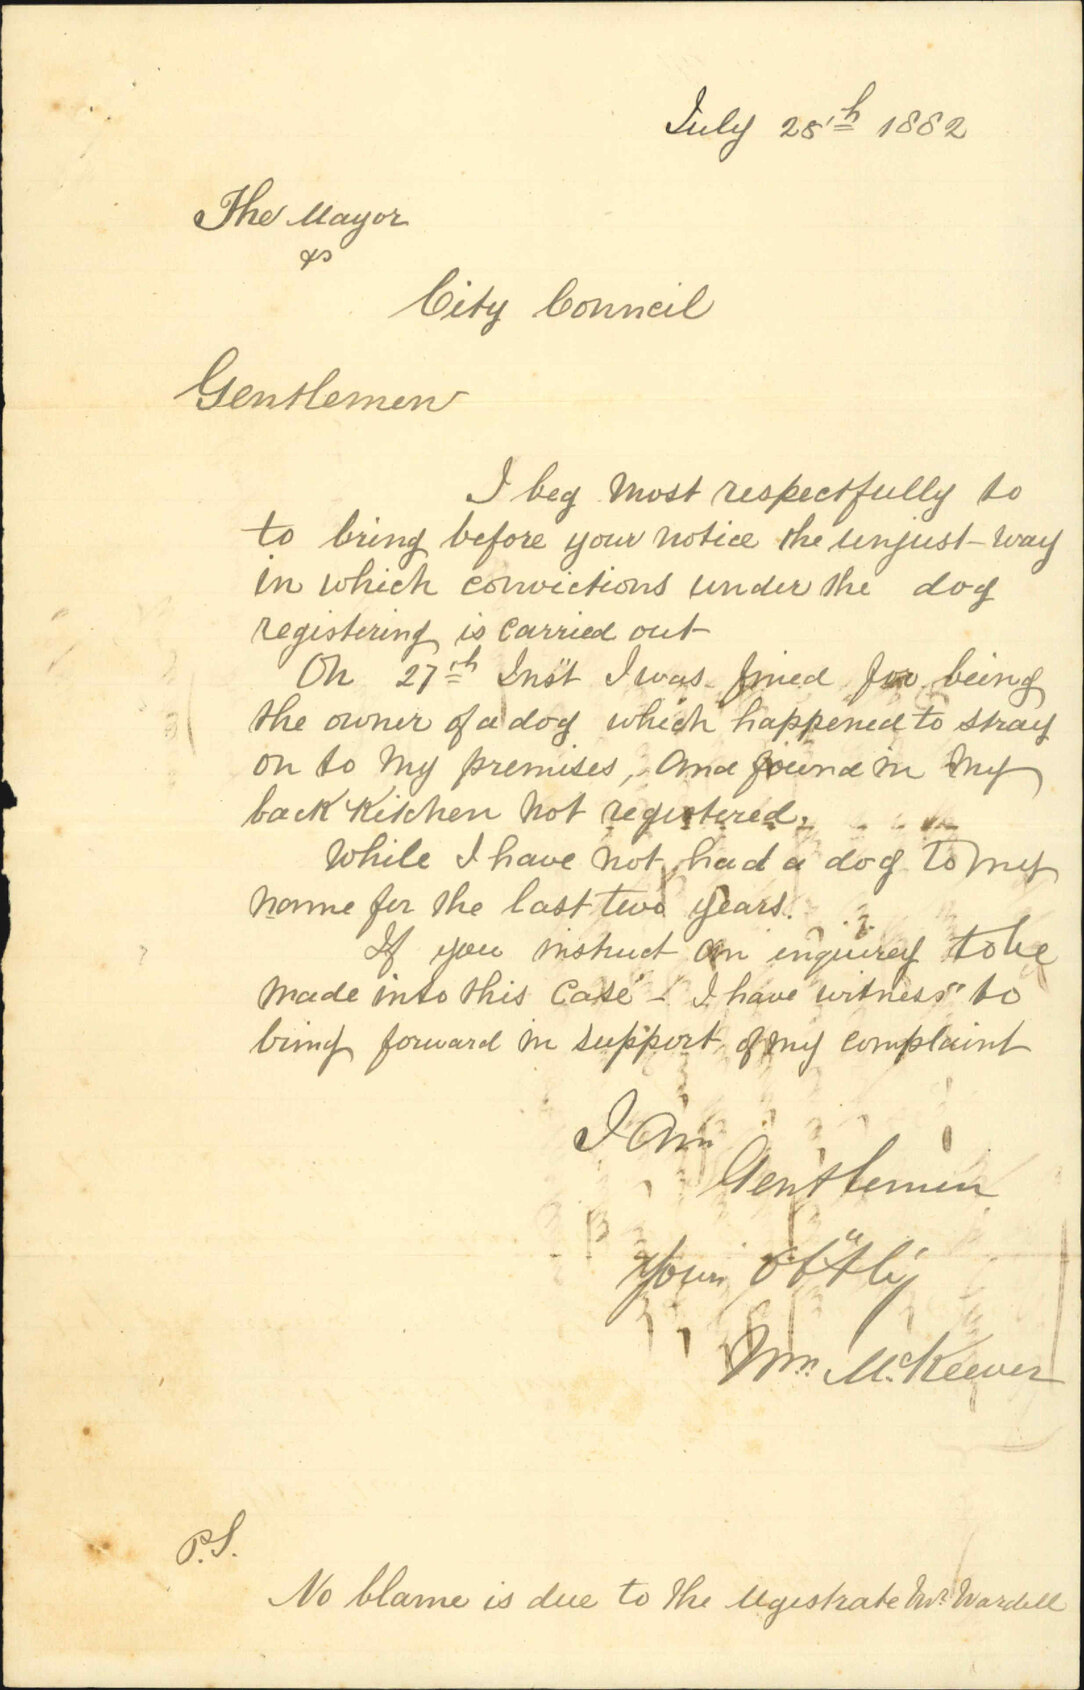 July 28th 1882
The Mayor
&
City Council
Gentlemen
I beg most respectfully to
to bring before your notice the unjust way
in which convictions under the dog
registering is carried out
On 27th Inst I was fined for being
the owner of a dog which happened to stray
on to my premises, and found in my
back kitchen not registered.
While I have not had a dog to my
name for the last two years.
If you instruct an inquirey to be
made into this case - I have witness" to
bring forward in support of my complaint
I Am
Gentlemen
Your Obtly
Wm. McKeever
P.S.
No blame is due to the Magistrate Mr Wardell